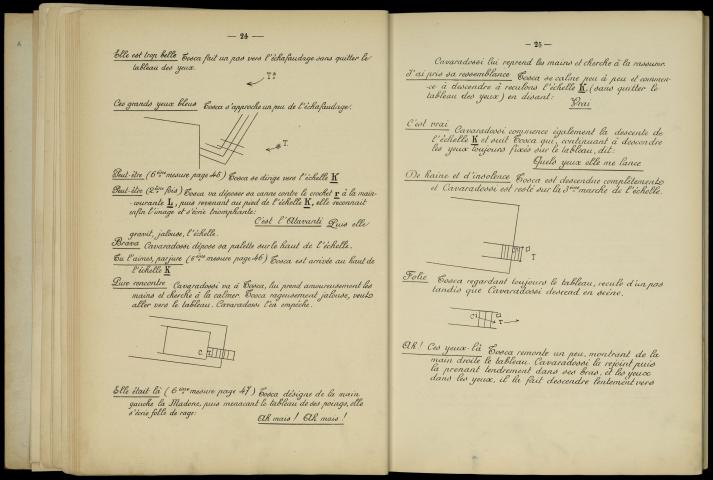 — 24 —
Elle est trop belle Tosca fait un pas vers l'échafaudage sans quitter le
tableau des yeux.
Ces grands yeux bleus Tosca s'approche un peu de l'échafaudage.
T.
Peut-être (6ème mesure page 45) Tosca se dirige vers l'échelle K
Peut-être (2ème fois) Tosca va déposer sa canne contre le crochet r à la main-
-courante L, puis revenant au pied de l'échelle K, elle reconnait
enfin l'image et s'écrie triomphante:
C'est l'Attavanti Puis elle
gravit, jalouse, l'échelle.
Brava Cavaradossi dépose sa palette sur le haut de l'échelle.
Tu l'aimes, parjure (6ème mesure page 46) Tosca est arrivée au haut de
l'échelle K
Pure rencontre Cavaradossi va à Tosca, lui prend amoureusement les
mains et cherche à la calmer. Tosca rageusement jalouse, veut
aller vers le tableau. Cavaradossi l'en empêche.
C. T
Elle était là (6ème mesure page 47) Tosca désigne de la main
gauche la Madone, puis menaçant le tableau de ses poings, elle
s'écrie folle de rage:
Ah mais! Ah mais!
— 25 —
Cavaradossi lui reprend les mains et cherche à la rassurer.
J'ai pris sa ressemblance Tosca se calme peu à peu et commen-
-ce à descendre à reculons l'échelle K (sans quitter le
tableau des yeux) en disant:
Vrai
C'est vrai
Cavaradossi commence également la descente de
l'échelle K et suit Tosca qui, continuant à descendre
les yeux toujours fixés sur le tableau, dit:
Quels yeux elle me lance
De haine et d'insolence Tosca est descendue complètement
et Cavaradossi est resté sur la 3ème marche de l'échelle.
T
Folie Tosca regardant toujours le tableau, recule d'un pas
tandis que Cavaradossi descend en scène.
C
T
Ah! Ces yeux-là Tosca remonte un peu, montrant de la
main droite le tableau. Cavaradossi la rejoint puis
la prenant tendrement dans ses bras, et les yeux
dans les yeux, il la fait descendre lentement vers